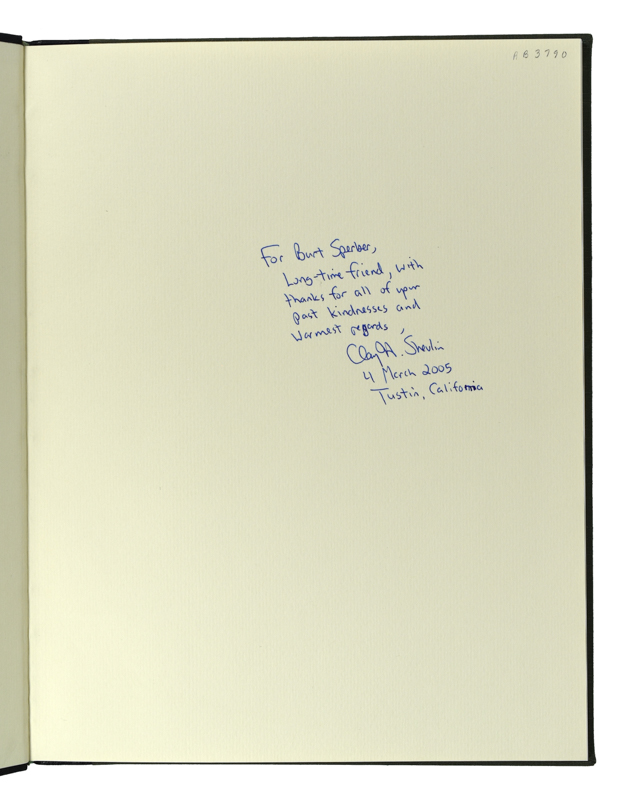 AE3790
For Burt Sperber,
Long-time friend, with
thanks for all of your
past kindnesses and
warmest regards,
Clay A. Shevlin
4 March 2005
Tustin, California